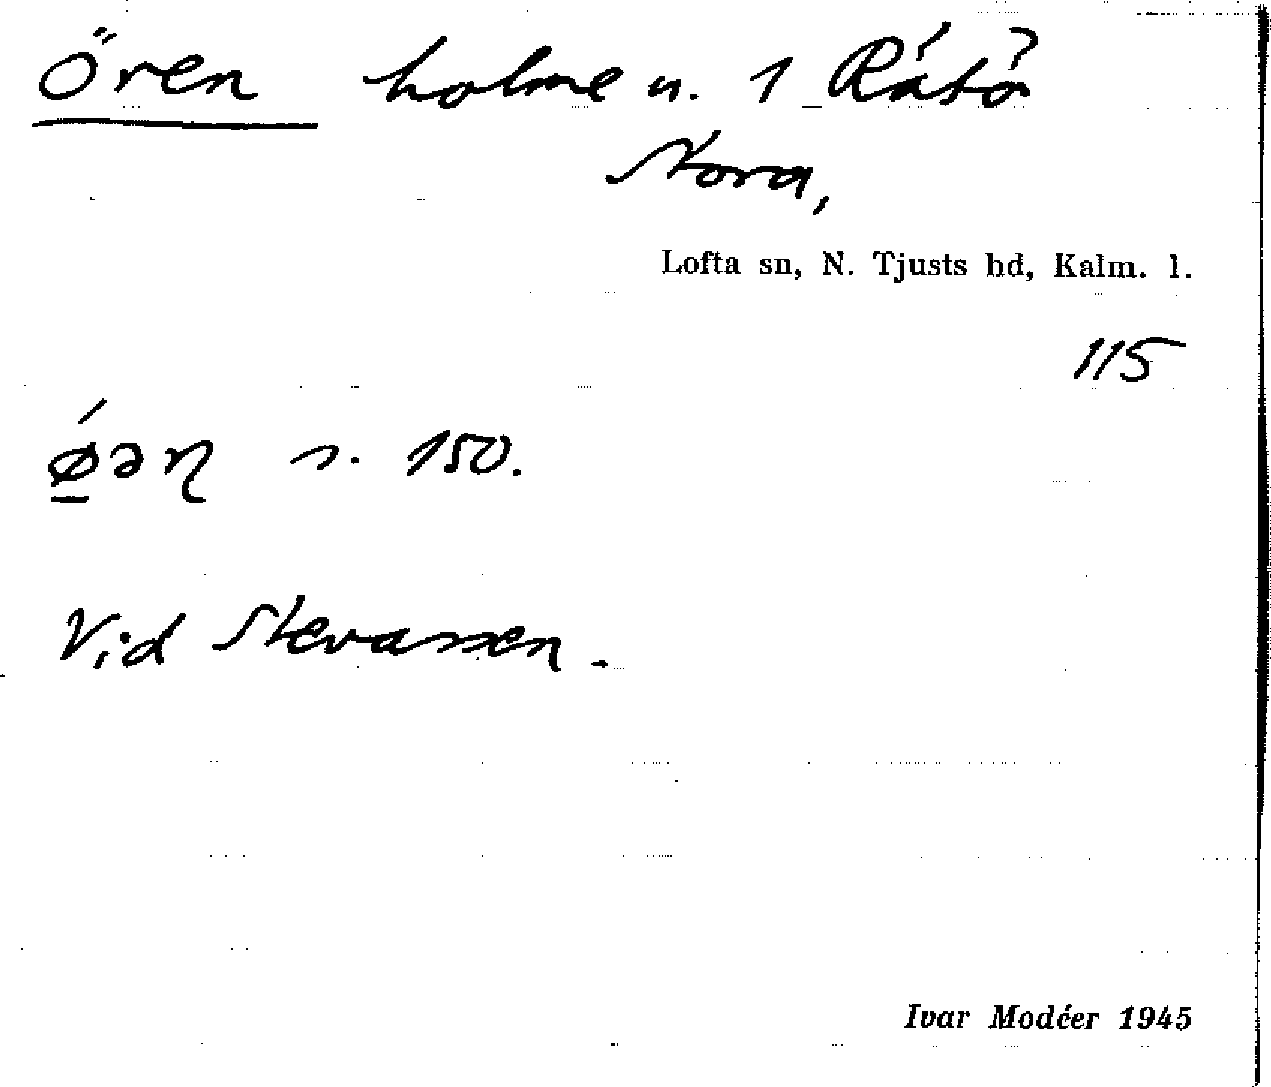 Ören holme n. 1 Råtö
Nora,
Lofta sn, N. Tjusts hd, Kalm. l.
115
ǿ̱əɳ s. 150.
Vid
Ivar Modéer 1945